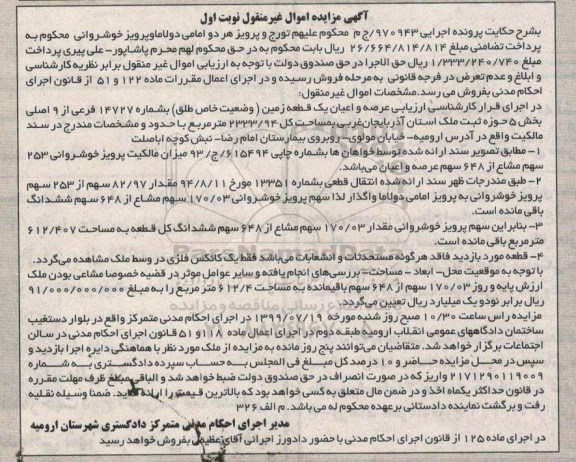 آگهی مزایده اموال غیرمنقول نوبت اول
بشرح حکایت پرونده اجرایی ۹۷۰۹۴۳/ج م محکوم علیهم تورج و پرویز هر دو امامی دولاماوپرویز خوشروانی محکوم به
پرداخت تضامنی مبلغ ۲۶/۶۶۴/۸۱۴/۸۱۴ ریال بابت محکوم به در حق محکوم لهم محرم پاشاپور- علی پیری پرداخت
مبلغ ۱/۳۳۳/۲۴۰/۷۴۰ ریال حق الاجرا در حق صندوق دولت با توجه به ارزیابی اموال غیر منقول برابر نظریه کارشناسی
و ابلاغ و عدم تعرض در فرجه قانونی به مرحله فروش رسیده و در اجرای اعمال مقررات ماده ۱۲۲ و ۵۱ از قانون اجرای
احکام مدنی بفروش می رسد.مشخصات اموال غیرمنقول:
در اجرای قرار کارشناسی ارزیابی عرصه و اعیان یک قطعه زمین ( وضعیت خاص طلق) بشماره ۱۴۷۲۷ فرعی از ۹ اصلی
بخش ۵ حوزه ثبت ملک استان آذربایجان غربی بمساحت کل ۲۳۳۳/۹۴ متر مربع با حدود و مشخصات مندرج در سند
مالکیت واقع در آدرس ارومیه- خیابان مولوی- روبروی بیمارستان امام رضا- نبش کوچه اباصلت
۱- مطابق تصویر سند ارائه شده توسط خواهان ها بشماره چاپی ۶۱۵۴۹۴/ج/۹۳ میزان مالکیت پرویز خوشروانی ۲۵۳
سهم مشاع از ۶۴۸ سهم عرصه و اعیان می‌باشد.
۲- طبق مندرجات ظهر سند ارائه شده انتقال قطعی بشماره ۱۳۳۵۱ مورخ ۹۴/۸/۱۱ مقدار ۸۲/۹۷ سهم از ۲۵۳ سهم
پرویز خوشروانی به پرویز امامی دولاما واگذار لذا سهم پرویز خوشروانی ۱۷۰/۰۳ سهم مشاع از ۶۴۸ سهم ششدانگ
باقی مانده است.
۳- بنابراین سهم پرویز خوشروانی مقدار ۱۷۰/۰۳ سهم مشاع از ۶۴۸ سهم ششدانگ کل قطعه به مساحت ۶۱۲/۴۰۷
مترمربع باقی مانده است.
۴- قطعه مورد بازدید فاقد هرگونه مستحدثات و انشعابات می‌باشد فقط یک کانکس فلزی در وسط ملک مشاهده می‌گردد.
با توجه به موقعیت محل- ابعاد - مساحت- بررسی‌های انجام یافته و سایر عوامل موثر در قضیه خصوصا مشاعی بودن ملک
ارزش پایه و روز ۱۷۰/۰۳ سهم از ۶۴۸ سهم باقیمانده به مساحت ۶۱۲/۴ متر مربع را به مبلغ ۹۱/۰۰۰/۰۰۰/۰۰۰
ریال برابر نودو یک میلیارد ریال تعیین می‌گردد.
مزایده راس ساعت ۱۰/۳۰ صبح روز شنبه مورخه ۱۳۹۹/۰۷/۱۹ در اجرای احکام مدنی متمرکز واقع در بلوار دستغیب
ساختمان دادگاههای عمومی انقلاب ارومیه طبقه دوم در اجرای اعمال ماده ۱۱۸ و ۵۱ قانون اجرای احکام مدنی در سالن
اجتماعات برگزار خواهد شد. متقاضیان می‌توانند پنج روز مانده به مزایده از ملک مورد نظر با هماهنگی دایره اجرا بازدید و
سپس در محل مزایده حاضر و ۱۰ درصد کل مبلغ فی المجلس به حساب سپرده دادگستری به شماره
۲۱۷۱۲۹۰۱۱۹۰۰۹ واریز که در صورت انصراف در حق صندوق دولت ضبط خواهد شد و الباقی مبلغ ظرف مهلت مقرره
در قانون حداکثر یکماه اخذ و در ضمن مال متعلق به کسی خواهد بود که بالاترین قیمت را ارائه نماید. ضمنا وسیله نقلیه
رفت و برگشت نماینده دادستانی برعهده محکوم له می باشد. م الف ۳۲۶
مدیر اجرای احکام مدنی متمرکز دادگستری شهرستان ارومیه
در اجرای ماده ۱۲۵ از قانون اجرای احکام مدنی با حضور دادورز اجرائی آقای عظیمی بفروش خواهد رسید